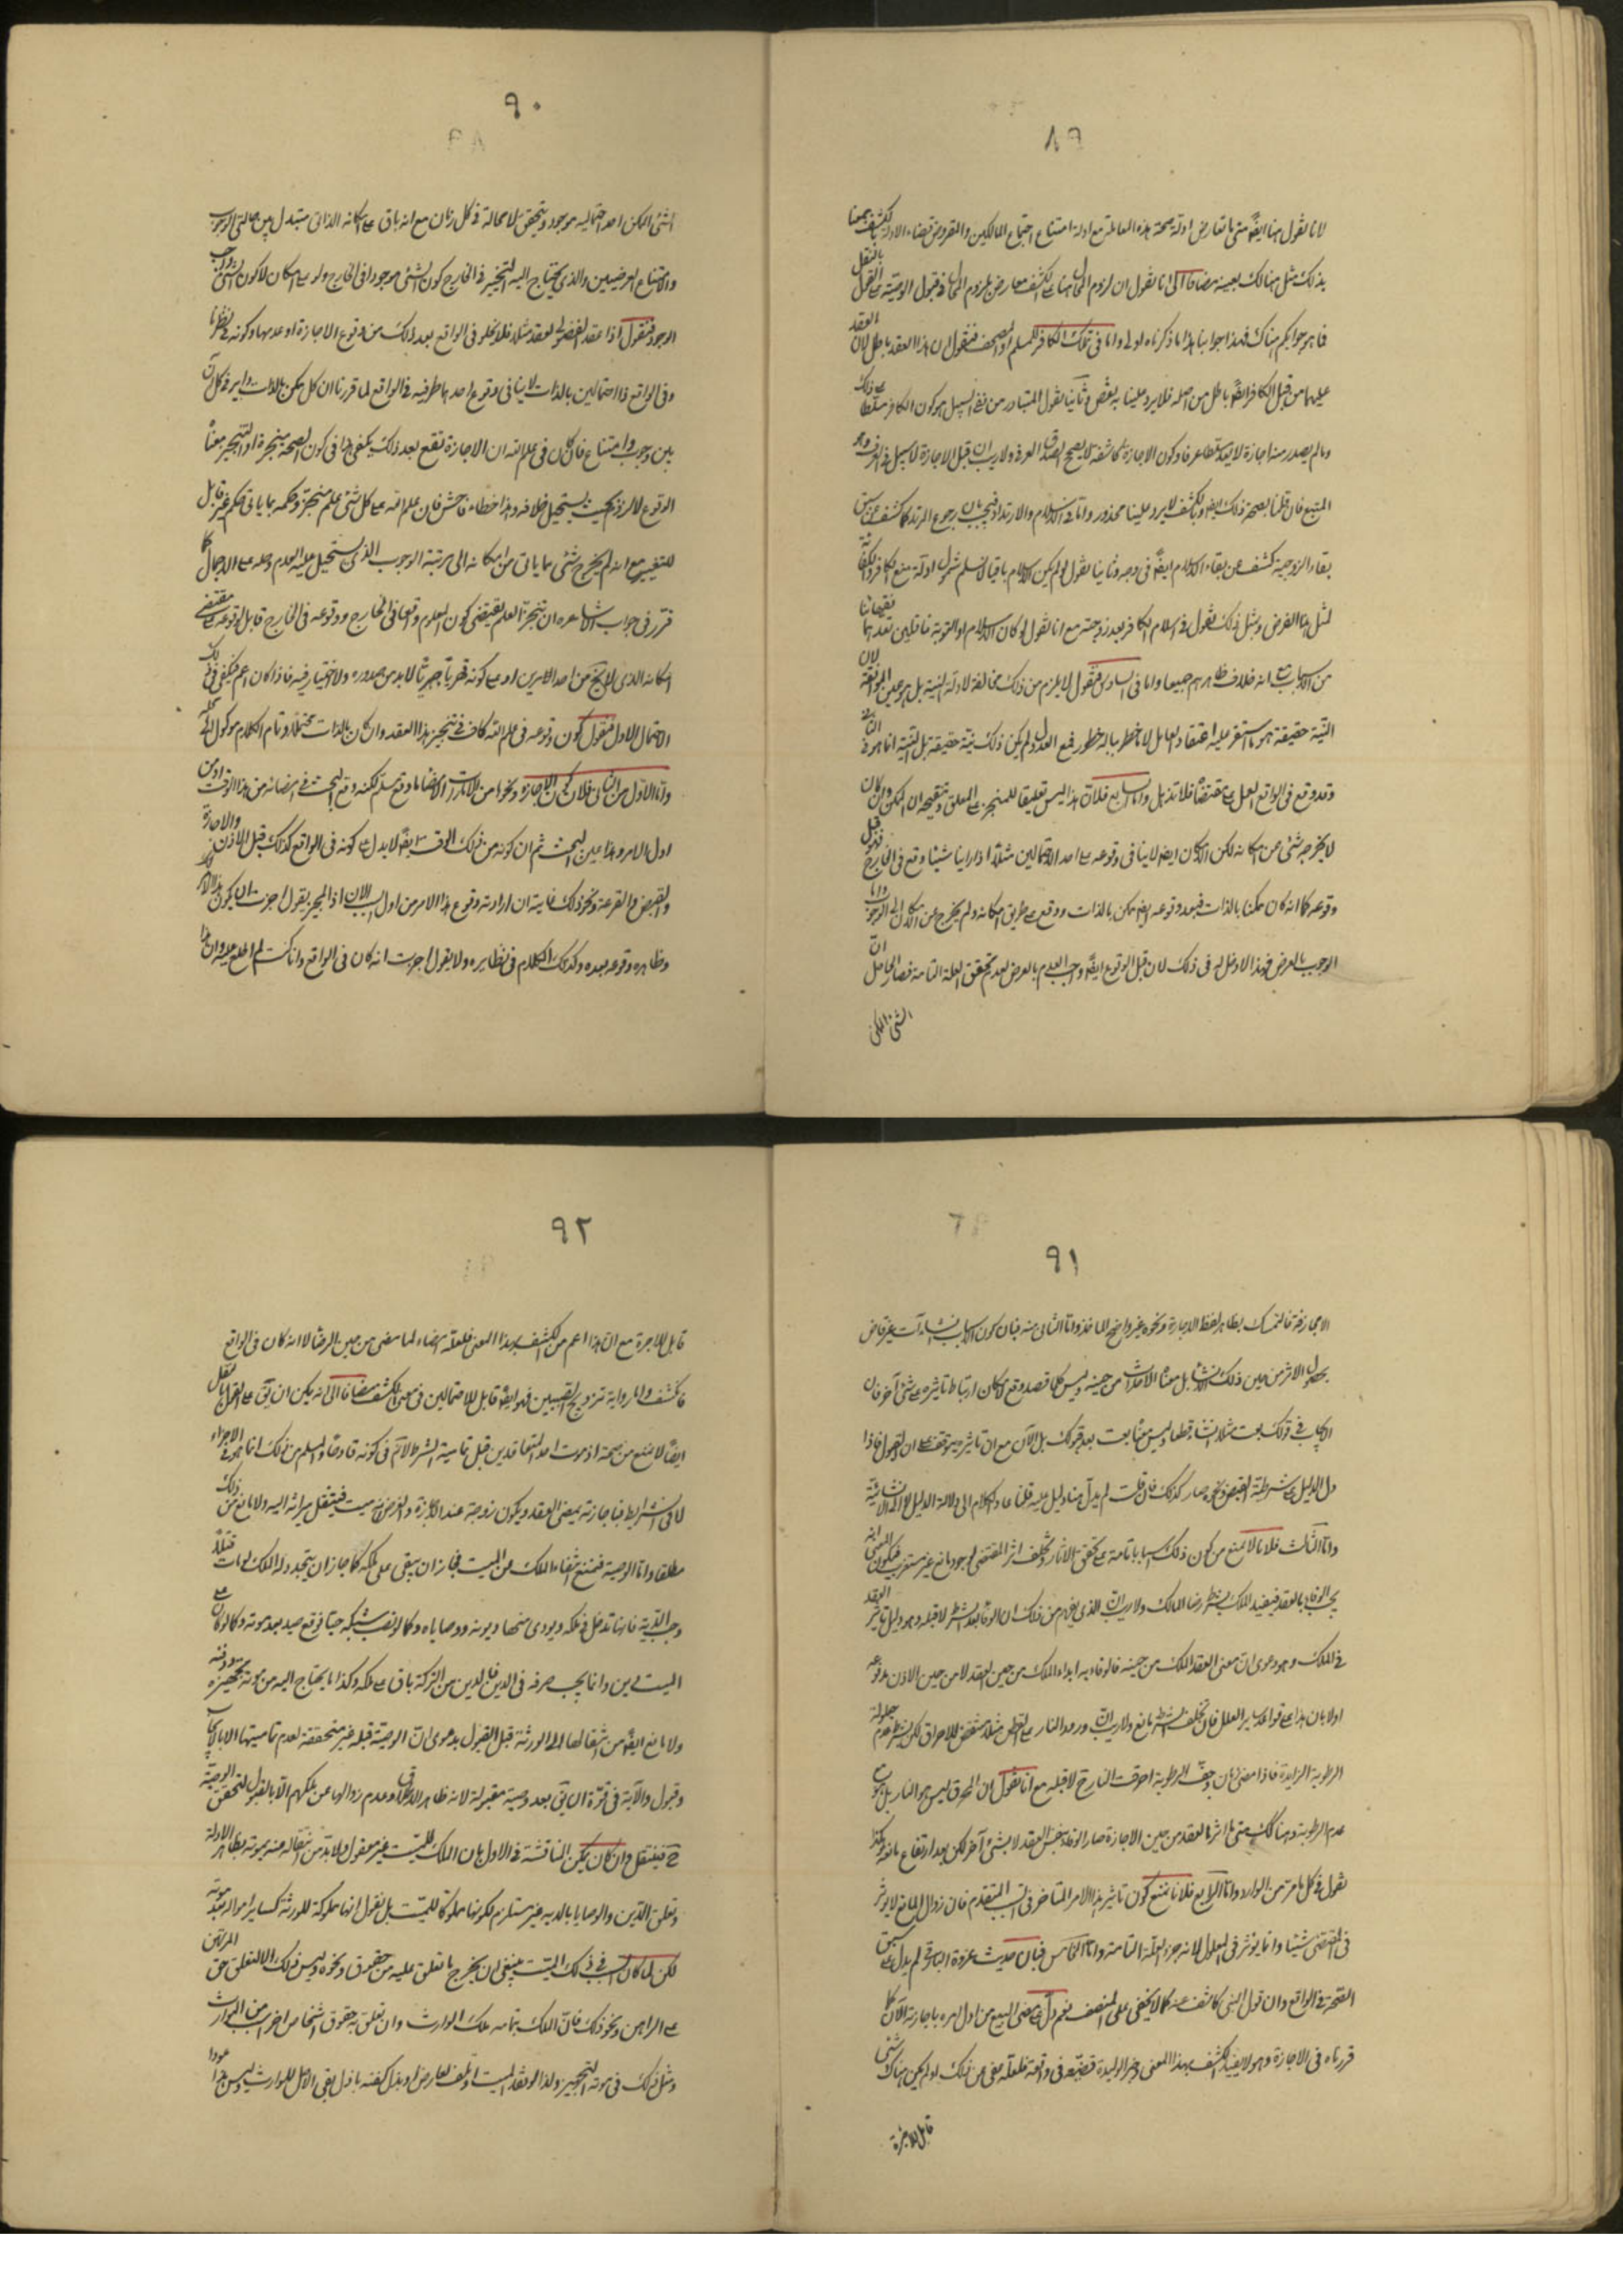 ٨٩
لانا نقول هنا ايضا متى تعارض ادلة صحة هذه المعاملة مع ادلة امتناع اجتماع المالكين والمفروض قضاء الادلة
بذلك مثل هنالك بعينه مضافا الى انا نقول ان لزوم المحال هنا على الكشف معارض بلزوم المحال فى قبول الوصية على القول بالنقل
فما هو جوابكم هناك فهذا جوابنا هنا ما ذكرناه اولى واما فى تملك الكافر للمسلم او المصحف فنقول ان هذا العقد باطل لان العقد
عليهما من قبل الكافر ايضا باطل من اصله فلا يرد علينا به نقض وثانيا نقول المتبادر من نفى السبيل هو كون الكافر مسلطا على ذلك
وما لم يصدر منه اجازة لا يعد مسلطا عرفا وكون الاجازة كاشفة لا يصحح الصدق العرفى ولا ريب ان قبل الاجازة لا سبيل فى العرف وهو
المتبع فان قلنا بصحة ذلك ايضا وبالكشف لا يرد علينا محذور واما فى الاسلام والارتداد فيجاب ان رجوع المرتد كما كشف عن سبق
بقاء الزوجية كشف عن بقاء الاسلام ايضا فى وجه وثانيا نقول لو لم يكن الاسلام باقيا لا نسلم شمول ادلة منع الكافر
لمثل هذا الفرض وبمثل ذلك نقول فى اسلام الكافر بعد زوجته مع انا نقول لو كان الاسلام او التوبة ناقلين
من الاسباب مع انه خلاف ظاهرهم جميعا واما فى السادس فنقول لا يلزم من ذلك مخالفة لادلة النية بل هو عين الموافقة لان
النية حقيقة هو ما استقر عليه اعتقاد العامل لا ما خطر بباله خطور فمع العدول لم يكن ذلك نية حقيقة بل النية انما هو فى
وقد وقع فى الواقع العمل على مقتضاه فلا تذهل واما السابع فلان هذا ليس تعليقا للمنجز على المعلق وتنقيحه ان الممكن وان كان
لا يخرجه شىء عن امكانه لكن الامكان ايضا لا ينافى وقوعه على احد الاحتمالين مثلا اذا راينا شيئا وقع فى الخارج
وقوعه كما انه كان ممكنا بالذات فبعد وقوعه ايضا ممكن بالذات ووقع على طريق امكانه ولم يخرج عن الامكان الى الوجوب واما
الوجوب بالعرض فهذا لا دخل له فى ذلك لان قبل الوقوع ايضا واجب العدم بالعرض لعدم تحقق العلة التامة فصار الحاصل ان
الشىء الممكن
٩٠
الشىء الممكن احد احتماليه موجود ويتحقق لا محالة فى كل زمان مع انه باق على امكانه الذاتى متبدل بين حالتى الوجوب
والامتناع العرضيين والذى يحتاج اليه التنجيز فى الخارج كون الشىء موجودا فى الخارج ولو على امكان لا كون الشىء واجب
الوجود فنقول اذا عقد الفضولى لعقد مثلا فلا يخلو فى الواقع بعد ذلك من وقوع الاجازة او عدمها وكونه فى نظرنا
وفى الواقع ذا احتمالين بالذات لا ينافى وقوع احد طرفيه فى الواقع لما قررنا ان كل ممكن بالذات دائر فى كل آن
بين وجوب وامتناع فان كان فى علم الله ان الاجازة تقع بعد ذلك يكفى هذا فى كون الصحة منجزة او التنجيز معناه
الوقوع لا لزوم بحيث يستحيل خلافه وهذا خطاء فاحش فان علم الله على كل شىء علم منجز وحكمه بما ياتى حكم غير قابل
للتغيير مع انه لم يخرج شىء مما ياتى من امكانه الى مرتبة الوجوب الذى يستحيل عليه العدم وحله على الاجمال كما
قرر فى جواب الاشاعرة ان تنجز العلم يقتضى كون المعلوم واقعا فى الخارج ووقوعه فى الخارج قابل لوقوعه على مقتضى
امكانه الذى لا يخرج من احد الامرين او على كونه قهريا جبريا لا بد من صدوره ولا اختيار فيه فاذا كان اعم فيكفى فى ذلك
الاحتمال الاول فنقول كون وقوعه فى علم الله كاف فى تنجيز هذا العقد وان كان بالذات محتملا وتمام الكلام موكول الى محله
واما الاول من الثانى فلان كون الاجازة ونحوها من الامور امضاء لما وقع مسلم لكنه وقع البحث فى امضائه من هذا الوقت او من
اول الامر وهذا عين البحث ثم ان كونه من ذلك الوقت ايضا لا يدل على كونه فى الواقع كذلك قبل الاذن والاجازة
والقبض والقرعة ونحو ذلك غايته ان ارادته وقوع هذا الامر من اول السبب الان اذ المجيز يقول اجزت ان يكون هذا الامر
وظاهره وقوعه بعده وكذلك الكلام فى نظائره ولا يقول اجزت انه كان فى الواقع وانا كنت لم اطلع عليه وان هذا
٩١
لا مجازفة فالتمسك بظاهر لفظ الاجازة ونحوه غير واضح الماخذ واما الثانى منه فبان كون الاسباب انشاءات غير قاض
بحصول الاثر من حين ذلك الانشاء بل معناه الاحداث من حينه وليس كلما قصد وقع لامكان ارتباط تاثيره على شىء آخر فان
الايجاب فى قولك بعت مثلا انشاء قطعا وليس معناه بعت بعد قبولك بل الآن مع ان تاثيره موقوف على ان القبول فاذا
دل الدليل على شرطية القبض ونحوه صار كذلك فان قلت لم يدل هنا دليل عليه قلنا عاد الكلام الى دلالة الدليل لا الى الانشائية
واما الثالث فلانا لا نمنع من كون ذلك اسبابا تامة على تحقق الآثار وتخلف اثر المقتضى لوجود مانع غير مستغرب فيكون المعنى انه
يجب الوفاء بالعقد فيفيد الملك بشرط رضا المالك ولا ريب ان الذى يفهم من ذلك ان الوفاء بعد الشرط لا قبله وهو دليل تاثير العقد
فى الملك وهو دعوى ان معنى العقد الملك من حينه فالوفاء به ابداء الملك من حين العقد لا من حين الاذن مدفوعة
اولا بان هذا على قواعد سائر العلل فان تخلف الشرط مانع ولا ريب ان ورود النار على القطن مثلا مقتض للاحراق لكن بشرط عدم حيلولة
الرطوبة الزايدة فاذا مضى زمان وجف الرطوبة احرقت النار ح لا قبله مع انا نقول ان المحرق ليس هو النار بل هو مع
عدم الرطوبة وهنالك متى ما اثر العقد من حين الاجازة صار الوفاء بنفس العقد لا بشىء آخر لكن بعد ارتفاع مانعه وكذا
نقول فى كل ما مر من الموارد واما الرابع فلانا نمنع كون تاثير هذا الامر المتاخر فى السبب المتقدم فان زوال المانع لا يؤثر
فى المقتضى شيئا وانما يؤثر فى المعلول لانه جزء العلة التامة واما الخامس فبان حديث عروة البارقى لم يدل على سبق
الصحة فى الواقع وان قول النبى كاشف عنه كما لا يخفى على المنصف نعم دل على مضى البيع من اول امره باجازته الآن كما
قررناه فى الاجازة وهو لا يفيد الكشف بهذا المعنى وخبر الوليدة قضية فى واقعة فلعله عفى عن ذلك او لم يكن هناك شىء
قابل للاجرة
٩٢
قابل للاجرة مع ان هذا اعم من الكشف بهذا المعنى فلعله امضاء لما مضى من حين الرضا لا انه كان فى الواقع
فانكشف واما رواية تزويج الصبيين فهو ايضا قابل للاحتمالين فى معنى الكشف مضافا الى انه يمكن ان يق على القول بالنقل
ايضا لا نمنع من صحة اذ موت احد المتعاقدين قبل تمامية الشرط لا نم فى كونه قادحا والمسلم من ذلك انما هو فى الاجزاء
لا فى الشرايط فباجازته يمضى العقد ويكون زوجة عند الاجازة والفرض انه ميت فينتقل ميراثه اليه ولا مانع من ذلك
مطلقا واما الوصية فنمنع انتفاء الملك من الميت فجاز ان يبقى على ملكه كما جاز ان يتجدد له الملك لو مات قتلا
وجب الدية فانها تدخل فى ملكه ويودى منها ديونه ووصاياه وكما لو نصب شبكة حيا فوقع صيد بعد موته وكما لو كان على
الميت دين وانما يجب صرفه فى الدين فالدين من التركة باق على ملكه وكذا ما يحتاج اليه من مؤنة تجهيزه ودفنه
ولا مانع ايضا من انتقالها الى الورثة قبل القبول بدعوى ان الوصية قبله غير متحققة لعدم تماميتها الا بالايجاب
وقبول والآية فى قوة ان يق بعد وصية مقبولة لانه ظاهر الاطلاق وعدم زوالها عن ملكهم الا بالقبول لتحقق الوصية
ح فينتقل وان كان يمكن المناقشة فى الاول بان الملك للميت غير معقول ولا بد من انتقاله عنه بموته بظاهر الادلة
وتعلق الدين والوصايا بالدية غير مستلزم لكونها مملوكة للميت بل نقول انها مملوكة للورثة كساير امواله بعد موته
لكن لما كان السبب فى ذلك الميت ينبغى ان يخرج ما تعلق عليه من حقوق ونحوه وليس ذلك الا كتعلق حق المرتهن
على الراهن ونحو ذلك فان الملك بتمامه ملك الوارث وان تعلق به حقوق اشخاص اخر من اسباب الموارث
ومثل ذلك فى مؤنة التجهيز ولذا لو فقد الميت او تلف لعارض او بذل كفنه باذل بقى الاصل للوارث وليس هذا عودا